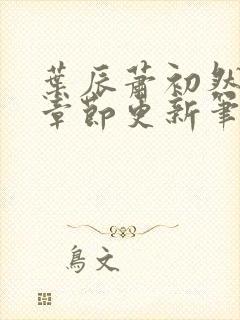 葉辰蕭初然
章節更新筆
鳥文